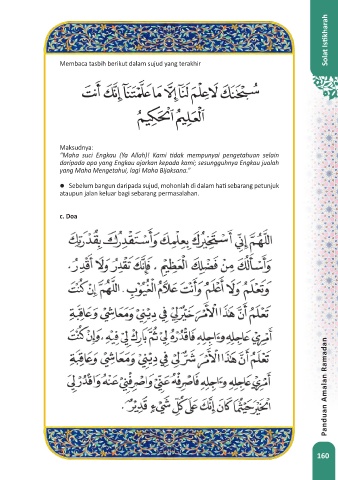 Solat Istikharah
Membaca tasbih berikut dalam sujud yang terakhir
سُبْحٰنَكَ لَا عِلْمَ لَنَآ إِلَّا مَا عَلَّمْتَنَآ إِنَّكَ أَنتَ
ٱلْعَلِيمُ ٱلْحَكِيمُ
Maksudnya:
"Maha suci Engkau (Ya Allah)! Kami tidak mempunyai pengetahuan selain
daripada apa yang Engkau ajarkan kepada kami; sesungguhnya Engkau jualah
yang Maha Mengetahui, lagi Maha Bijaksana."
● Sebelum bangun daripada sujud, mohonlah di dalam hati sebarang petunjuk
ataupun jalan keluar bagi sebarang permasalahan.
c. Doa
اَللّٰهُمَّ إِنِّيْ أَسْتَخِيْرُكَ بِعِلْمِكَ وَأَسْتَقْدِرُكَ بِقُدْرَتِكَ
وَأَسْأَلُكَ مِنْ فَضْلِكَ الْعَظِيْمِ ، فَإِنَّكَ تَقْدِرُ وَلَا أَقْدِرُ،
وَتَعْلَمُ وَلَا أَعْلَمُ وَأَنْتَ عَلَّامُ الْغُيُوْبِ. اَللّٰهُمَّ إِنْ كُنْتَ
تَعْلَمُ أَنَّ هَذَا الْأَمْرَ خَيْرٌ لِيْ فِيْ دِيْنِيْ وَمَعَاشِيْ وَعَاقِبَةِ
أَمْرِيْ عَاجِلِهِ وَءَاجِلِهِ فَاقْدُرْهُ لِيْ ثُمَّ بَارِكْ لِيْ فِيْهِ ، وَإِنْ كُنْتَ
تَعْلَمُ أَنَّ هَذَا الْأَمْرَ شَرٌّ لِيْ فِيْ دِيْنِيْ وَمَعَاشِيْ وَعَاقِبَةِ
أَمْرِيْ عَاجِلِهِ وَءَاجِلِهِ فَاصْرِفْهُ عَنِّيْ وَاصْرِفْنِيْ عَنْهُ وَاقْدُرْ لِيَ
الْخَيْرَ حَيْثُمَا كَانَ إِنَّكَ عَلَى كُلِّ شَيْءٍ قَدِيْرٌ.
Panduan Amalan Ramadan
160